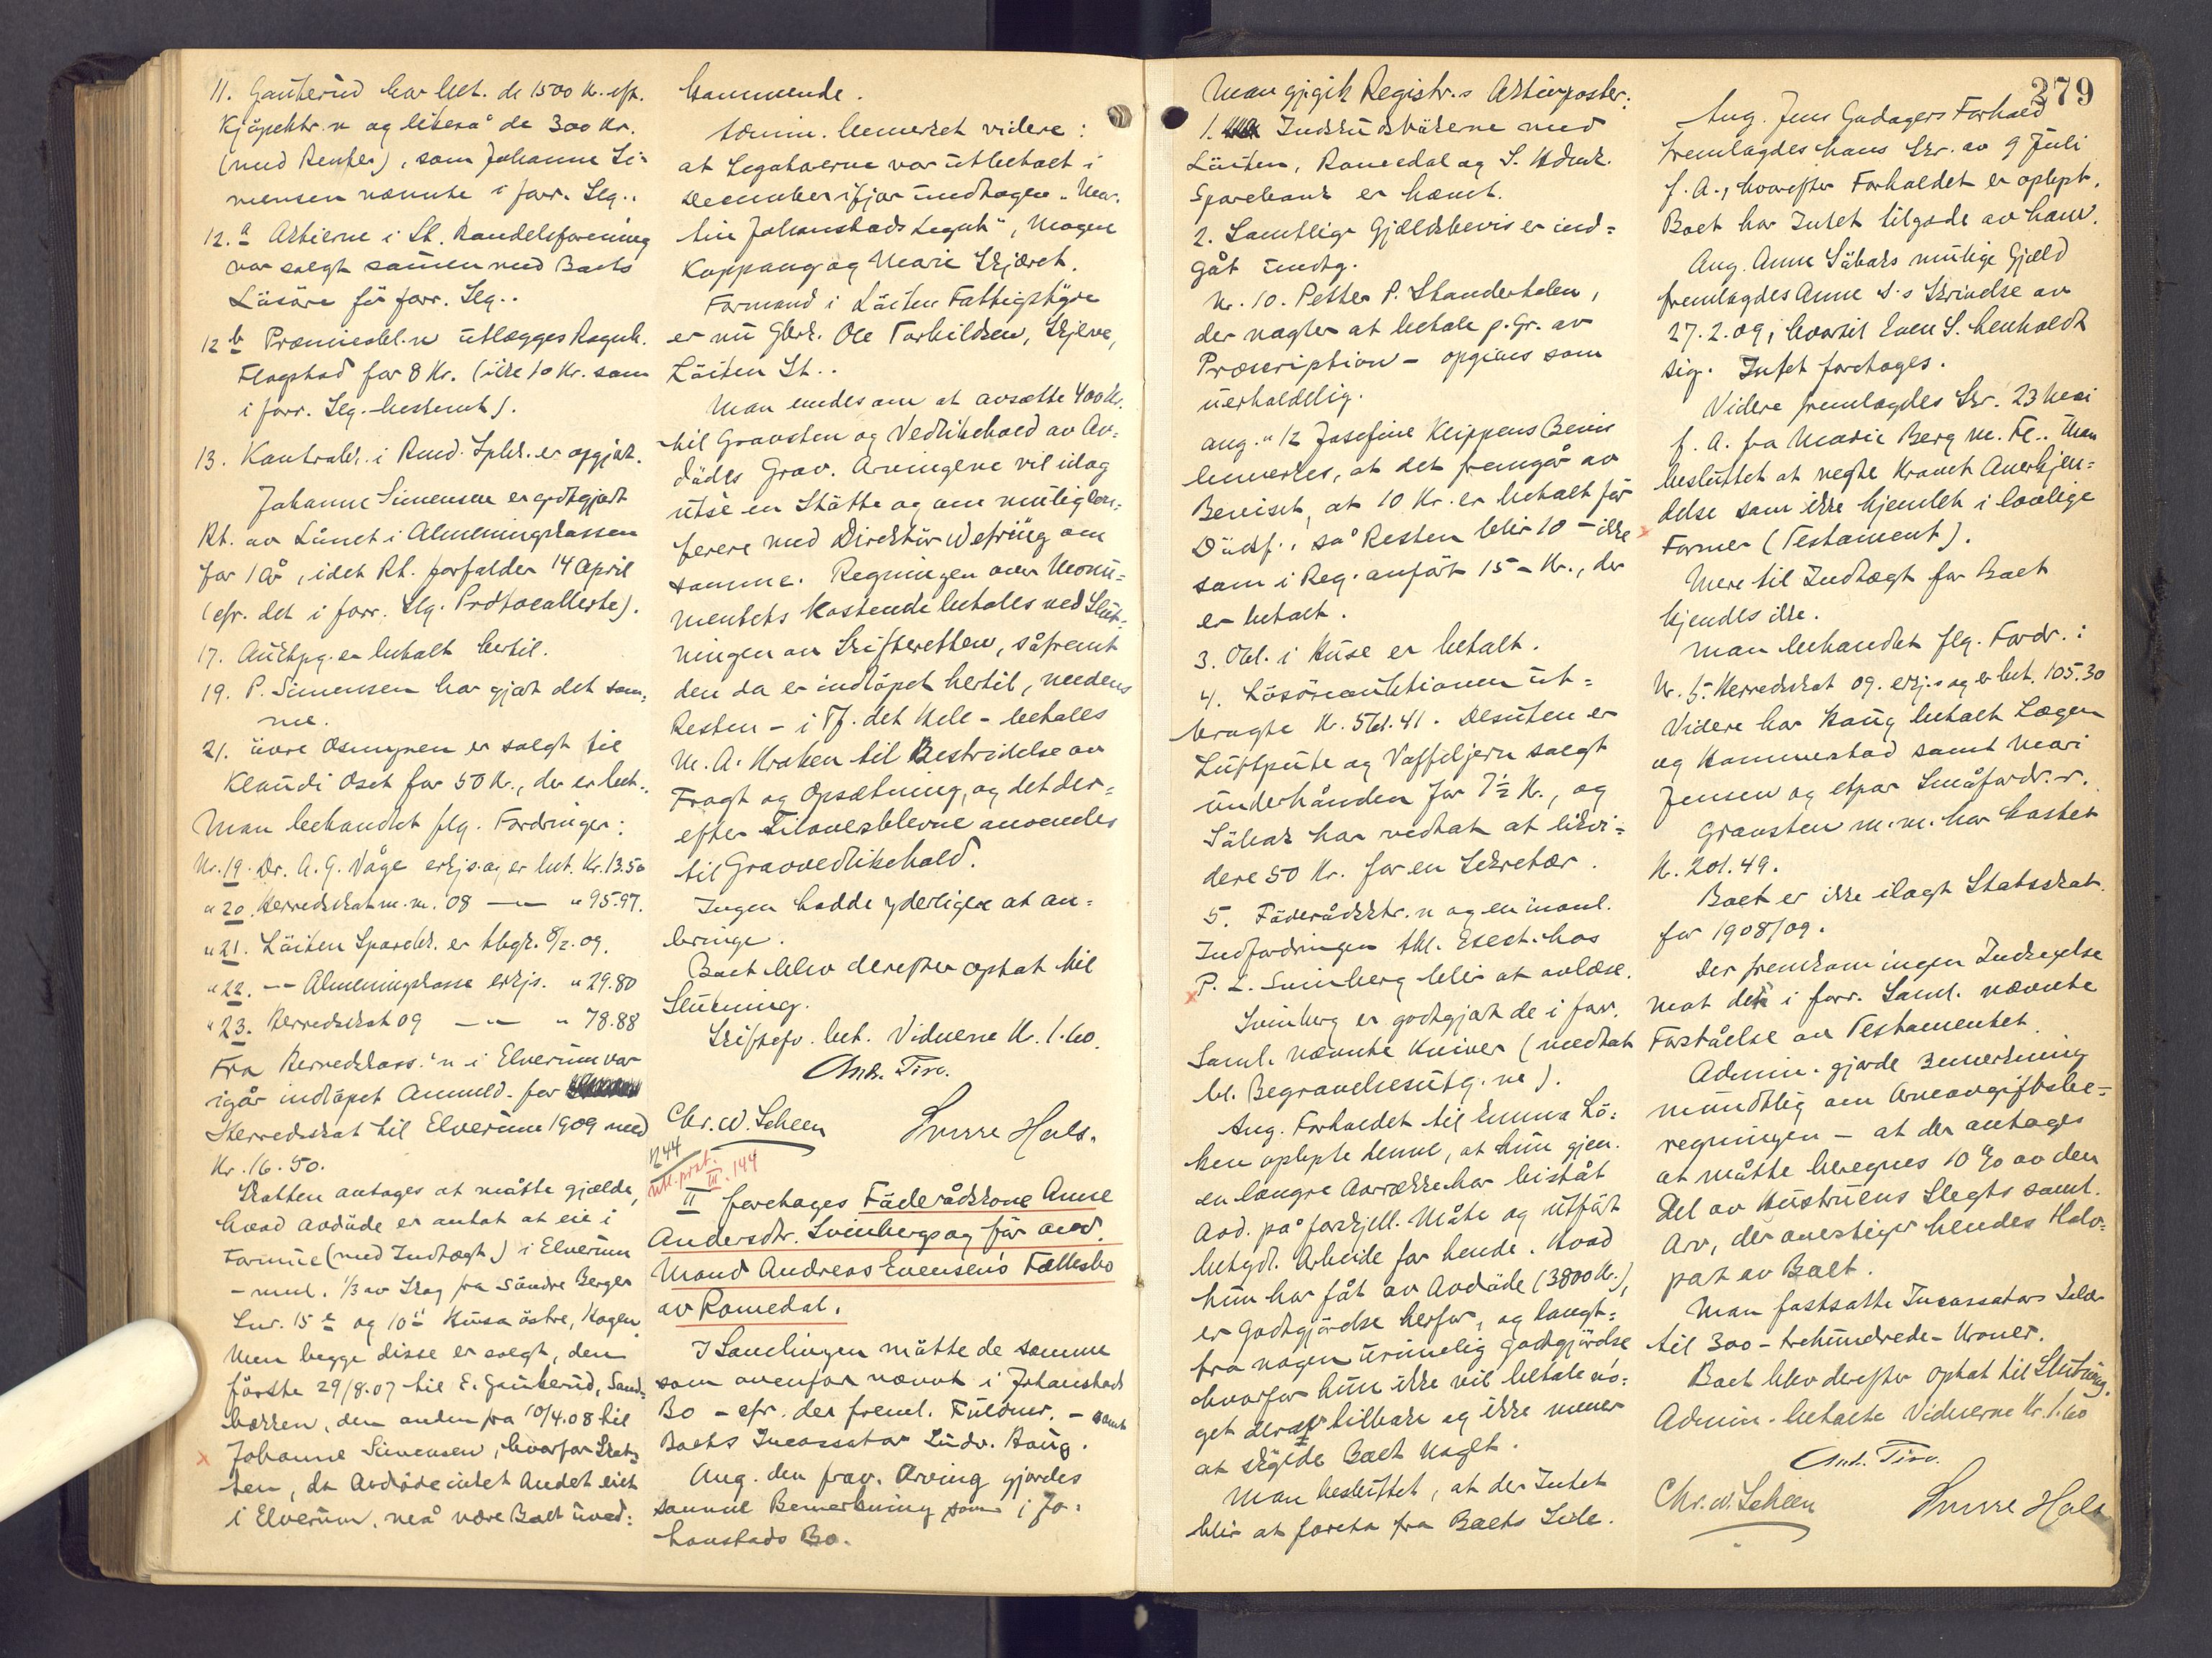 11. Gauterud har bet. de 1500 Kr. efr.
Kjöpektr. n og likeså de 300 Kr.
(med Renter), som Johanne Si-
mensen nævnte i forr. Slg..
12.a Aktierne i Lt. Handelsforening
var solgt sammen med Boets
Lösöre för forr. Slg..
12 b Præmieobl. n utlægges Ragnh.
Flagstad for 8 Kr. (ikke 10 Kr. som
i forr. Slg. bestemt).
13. Kontrabk. i Rmd. Spbk. er opgjort.
Johanne Simensen er godtgjort
Rt. av Lånet i Almenningskassen
for 1 År, idet Rt. forfalder 14 April
(cfr. det i forr. Slg. Protocollerte).
17. Auktpg. er betalt hertil.
19. P. Simensen har gjort det sam-
me.
21. övre Osmyren er solgt til
Klaudi Oset for 50 Kr., der er bet..
Man behandlet flg. Fordringer:
Nr. 19. Dr. A. G. Våge erkjs. og er bet. Kr. 13.50
" 20. Herredsskat m. m. 08 —"— " 95.97.
" 21. Löiten Sparebk. er tbgk. 8/2. 09.
" 22. —"— Almenningskasse erkjs. " 29.80
" 23. Herredsskat 09 —"— " 78.88
Fra Herredskass. 'n i Elverum var
igår indlöpet Anmeld. for
Herredsskat til Elverum 1909 med
Kr. 16.50.
Skatten antages at måtte gjælde,
hvad avdöde er antat at eie i
Formue (med Indtægt) i Elverum
- nml. 1/3 av Skog fra Söndre Berger
Lnr. 15 a og 10 Husa östre, Hagen.
Men begge disse er solgt, den
förste 29/8.07 til E. Gauterud, Sand-
bakken, den anden fra 10/4.08 til
Johanne Simensen, hvorfor Skat-
ten, da Avdöde intet Andet eiet
i Elverum, må være Boet uved-
kommende.
Admin. bemerket videre:
at Legatarerne var utbetalt i
December ifjor undtagen „Mar-
tin Johanstads Legat", Mogens
Koppang og Marie Skjæret.
Formand i Löiten Fattigstyre
er nu Gbrk. Ole Torkildsen, Skjerve,
Löiten St..
Man enedes om at avsætte 400 Kr.
til Gravsten og Vedlikehold av Av-
dödes Grav. Arvingene vil idag
utse en Stötte og om mulig con-
ferere med Direktör Wefring om
samme. Regningen over Monu-
mentets Kostende betales ved Slut-
ningen av Skifteretten, såfremt
den da er indlöpet hertil, medens
Resten - i Tf. det Hele - betales
M. A. Kraken til Bestridelse av
Fragt og Opsætning, og det der-
efter Tiloversblevne anvendes
til Gravvedlikehold.
Ingen hadde yderligere at an-
bringe.
Boet blev derefter optat til
Slutning.
Skiftefv. bet. Vidnerne Kr. 1.60.
And. Tiro.
Chr. W. Scheen Sverre Hals.
N 44
utl. prot. III. 144
II foretages Föderådskone Anne
Andersdtr. Svenbergs og för avd.
Mand Andreas Evensens Fællesbo
av Romedal.
I Samlingen mötte de samme
som ovenfor nævnt i Johanstads
Bo - cfr. der freml. Fuldmr. - samt
Boets Incassator Ludv. Haug.
Ang. den frav. Arving gjordes
samme Bemerkning som i Jo-
hanstads Bo.
379
Man gjgik Registr.s Aktivposter:
1. Indskudsbökerne med
Löiten, Romedal og S. Hdmk.
Sparebank er hævet.
2. Samtlige Gjældsbevis er ind-
gåt undtg.
Nr. 10. Petter P. Standerholen,
der nagter at betale p. Gr. av
Præscription - opgives som
uerholdelig.
Ang. " 12 Josefine Klippens Bevis
bemerkes, at det fremgår av
Beviset, at 10 Kr. er betalt för
Dödsf., så Resten blir 10 - ikke
som i Reg. anfört 15 - Kr., der
er betalt.
3. Obl. i Huse er betalt.
4. Lösöreauktionen ut-
bragte Kr. 561.41. Desuten er
Luftpute og Vaffeljern solgt
underhånden for 7 1/2 Kr., og
Säbak har vedtat at likvi-
dere 50 Kr. for en Sekretær.
5. Föderådsktr. n og en mænl.
Indfordringen tbl. Exect. hos
P. L. Svenberg blir at avlæse.
Svenberg er godtgjort de i forr.
Saml. nævnte Kniver (medtat
bl. Begravelsesutg. ne).
Ang. Forholdet til Emma Lö-
ken oplyste denne, at hun gjen.
en længre Aarrække har bistået
Avd. på forskjell. Måte og utfört
betydl. Arbeide for hende. Hvad
hun har fåt av Avdöde (3800 Kr.),
er Godtgjörelse herfor, og langt-
fra nogen urimelig Godtgjörelse
hvorfor hun ikke vil betale no-
get derav tilbake og ikke mener
at skylde Boet noget.
Man besluttet, at der Intet
blir at foreta fra Boets Side.
Ang. Jens Godagers Forhold
fremlagdes hans Skr. av 9 Juli
f. A., hvorefter Forholdet er oplyst.
Boet har Intet tilgode av ham.
Ang. Anne Säbaks mulige Gjæld
fremlagdes Anne S.s Skrivelse av
27.2.09, hvortil Even S. henholdt
sig. Intet foretages.
Videre fremlagdes Skr. 23 Mai
f. A. fra Marie Berg m. Fl.. Man
besluttet at negte Kravet Anerkjen-
delse som ikke hjemlet i lovlige
Former (Testament).
Mere til Indtægt for Boet
kjendes ikke.
Man behandlet flg. Fordr.:
Nr. 5. Herredsskat 09. erkj.s og er bet. 105.30
Videre har Haug betalt Lægen
og Hammerstad samt Mari
Jensen og etpar Småfordr. r.
Gravsten m. m. har kostet
Kr. 201.49.
Boet er ikke ilagt Statsskat
for 1908/09.
Der fremkom ingen Indsigelse
mot den i forr. Saml. nævnte
Forståelse av Testamentet.
Admin. gjorde Bemerkning
mundtlig om Arveavgiftsbe-
regningen - at der antages
at måtte beregnes 10 % av den
Del av Hustruens Slegts saml.
Arv, der overstiger hendes Halv-
part av Boet.
Man fastsatte Incassators Salær
til 300 - trehundrede - Kroner.
Boet blev derefter optat til Slutning.
Admin. betalte Vidnerne Kr. 1.60
And. Tiro.
Chr. W. Scheen Sverre Hals